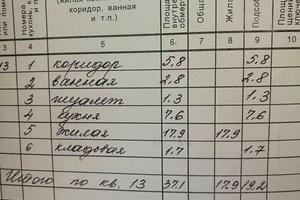 коридор, ванная
и т.п.)
3 4 5 6 7 8 9 10
13 1 коридор 5,8 5,8
2 ванная 2.8 2.8
3 туалет 1.3 1.3
4 кухня 7.6 7.6
5 жилая 17.9 17.9
6 кладовая 1.7 1.7
Итого по кв. 13 37.1 17.9 19.2